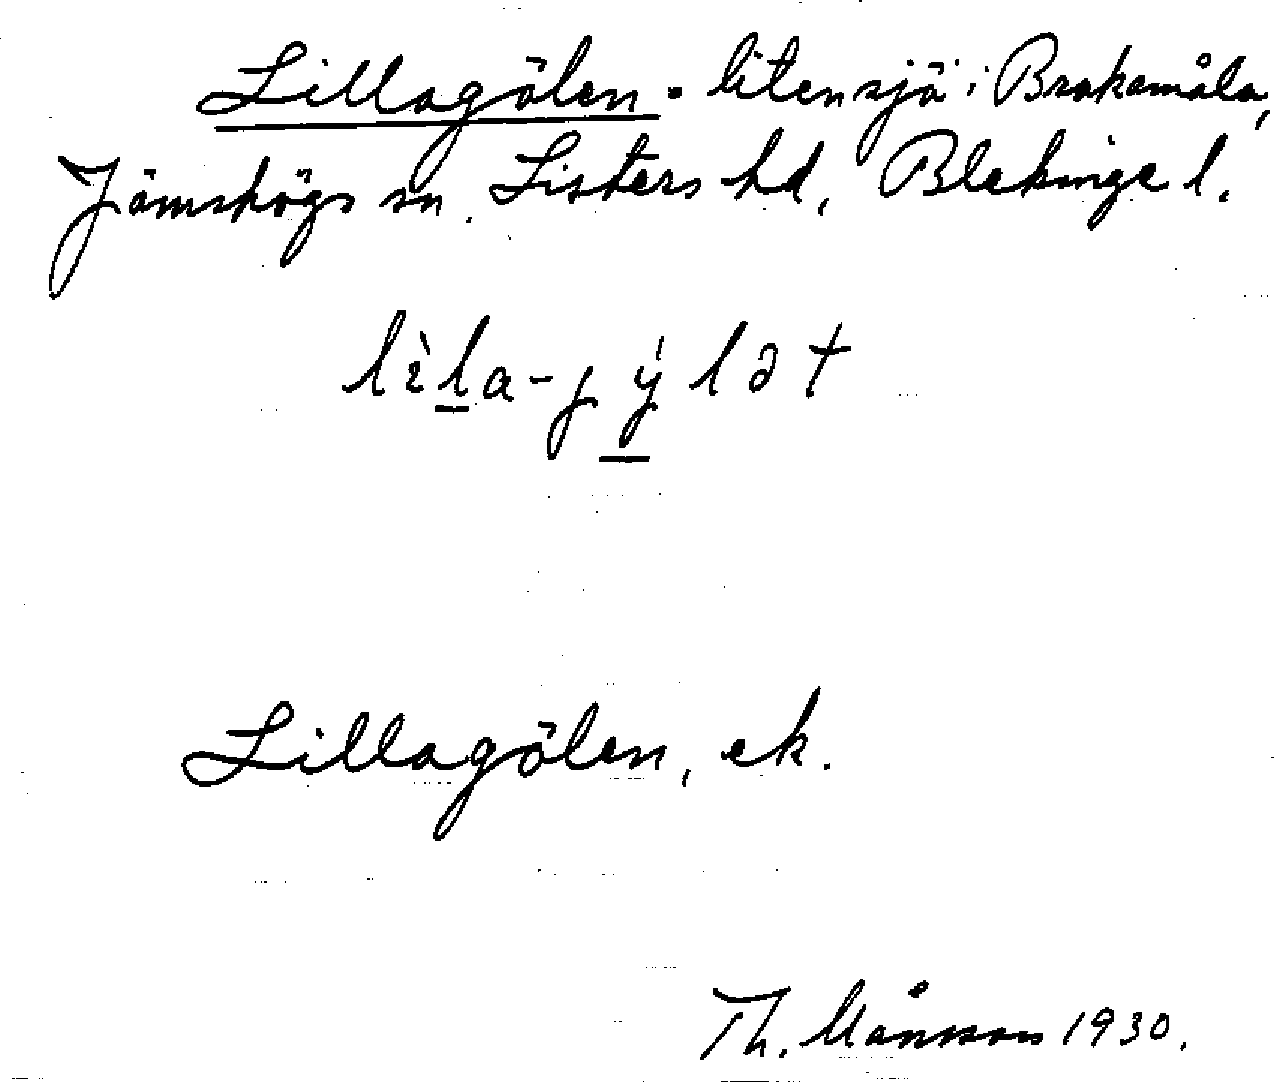 Lillagölen - liten sjö i Brokamåla,
Jämshögs sn. Listers hd, Blekinge l.
lìla-jýlət
Lillagölen, ek.
Th. Månsson 1930.